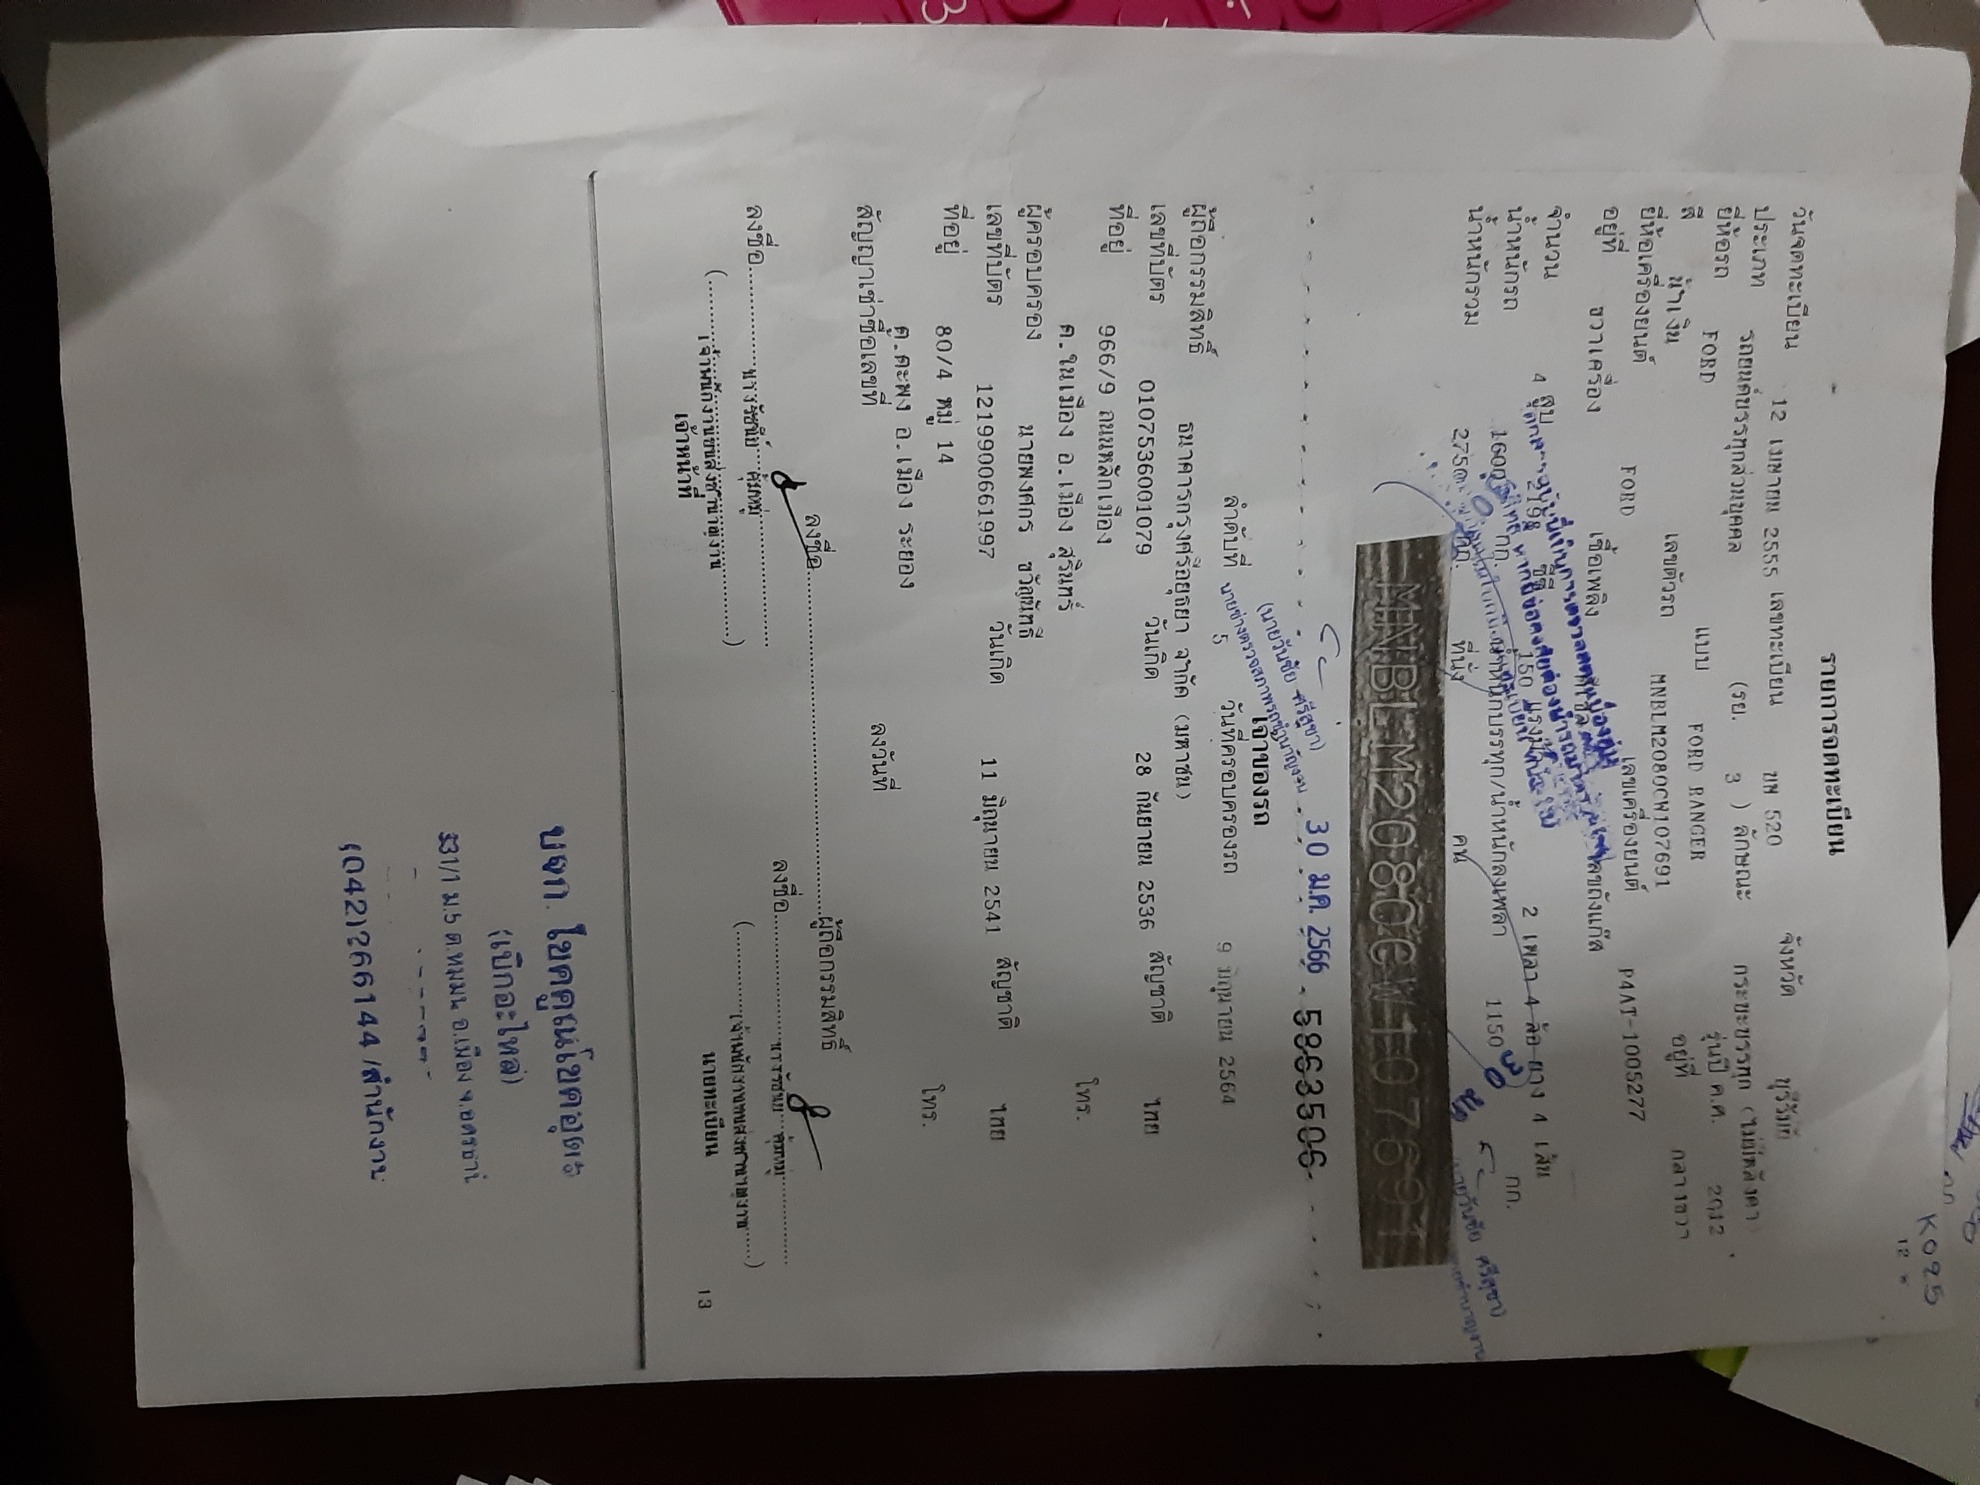 รายการจดทะเบียน
วันจดทะเบียน 12 เมษายน 2555 เลขทะเบียน 520 จังหวัด บุรีรัมย์
ประเภท รถยนต์บรรทุกส่วนบุคคล (รย. 3 ) ลักษณะ กระบะบรรทุก (ไม่มีหลังคา)
ยี่ห้อรถ FORD แบบ FORD RANGER รุ่นปี ค.ศ. 2012
สี น้ำเงิน เลขตัวรถ MNBLM2080CW107691 อยู่ที่ กลางขวา
ยี่ห้อเครื่องยนต์ FORD เลขเครื่องยนต์ P4AT-1005277
อยู่ที่ ขวาเครื่อง เชื้อเพลิง ดีเซล เลขถังแก๊ส
จำนวน 4 สูบ 2198 ซีซี 150 แรงม้า 2 เพลา 4 ล้อ ยาง 4 เส้น
น้ำหนักรถ 1600 กก. น้ำหนักบรรทุก/น้ำหนักลงเพลา 1150 กก.
น้ำหนักรวม 2750 กก. ที่นั่ง คน
(นายวันชัย ศรีสุขา)
MNBLM2080CW107691
30 ม.ค. 2566 5863506
(นายวันชัย ศรีสุขา)
นายช่างตรวจสภาพรถชำนาญงาน
เจ้าของรถ
ลำดับที่ 5 วันที่ครอบครองรถ 9 มิถุนายน 2564
ผู้ถือกรรมสิทธิ์ ธนาคารกรุงศรีอยุธยา จำกัด (มหาชน)
เลขที่บัตร 0107536001079 วันเกิด 28 กันยายน 2536 สัญชาติ ไทย
ที่อยู่ 966/9 ถนนหลักเมือง
ต.ในเมือง อ.เมือง สุรินทร์ โทร.
ผู้ครอบครอง นายพงศกร ขวัญนัทธี
เลขที่บัตร 1219900661997 วันเกิด 11 มิถุนายน 2541 สัญชาติ ไทย
ที่อยู่ 80/4 หมู่ 14
ต.ตะพง อ.เมือง ระยอง โทร.
สัญญาเช่าซื้อเลขที่ ลงวันที่
ลงชื่อ ผู้ถือกรรมสิทธิ์
ลงชื่อ ลงชื่อ
(เจ้าพนักงานขนส่งชำนาญงาน) (เจ้าพนักงานขนส่งชำนาญงาน)
เจ้าหน้าที่ นายทะเบียน
13
บจก. โชคคูณโชคอุดร
(เบิกอะไหล่)
331/1 ม.5 ต.หมูม่น อ.เมือง จ.อุดรธานี
(042)266144/สำนักงาน